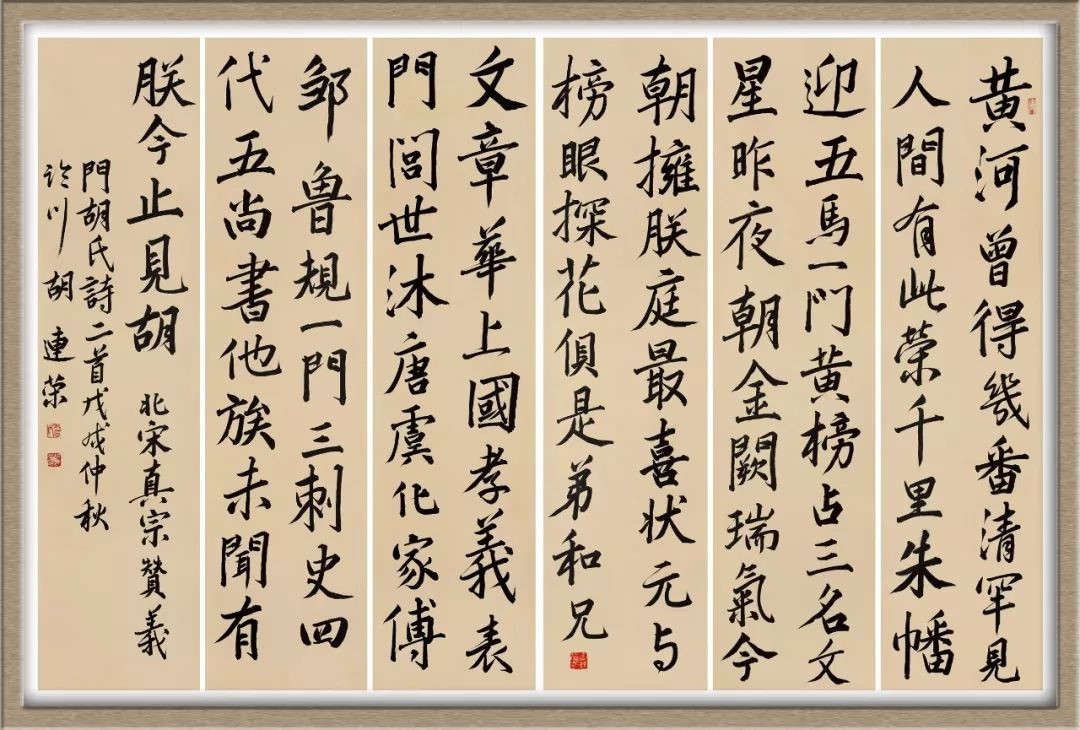 黄河曾得幾番清罕見
人間有此榮千里朱幡
迎五馬一門黄榜占三名文
星昨夜朝金闕瑞氣今
朝擁朕庭最喜状元与
榜眼探花俱是弟和兄
文章華上國孝義表
門閭世沐唐虞化家傳
邹魯規一門三刺史四
代五尚書他族未聞有
朕今止見胡 北宋真宗贊義
門胡氏詩二首戊戌仲秋
臨川胡連榮